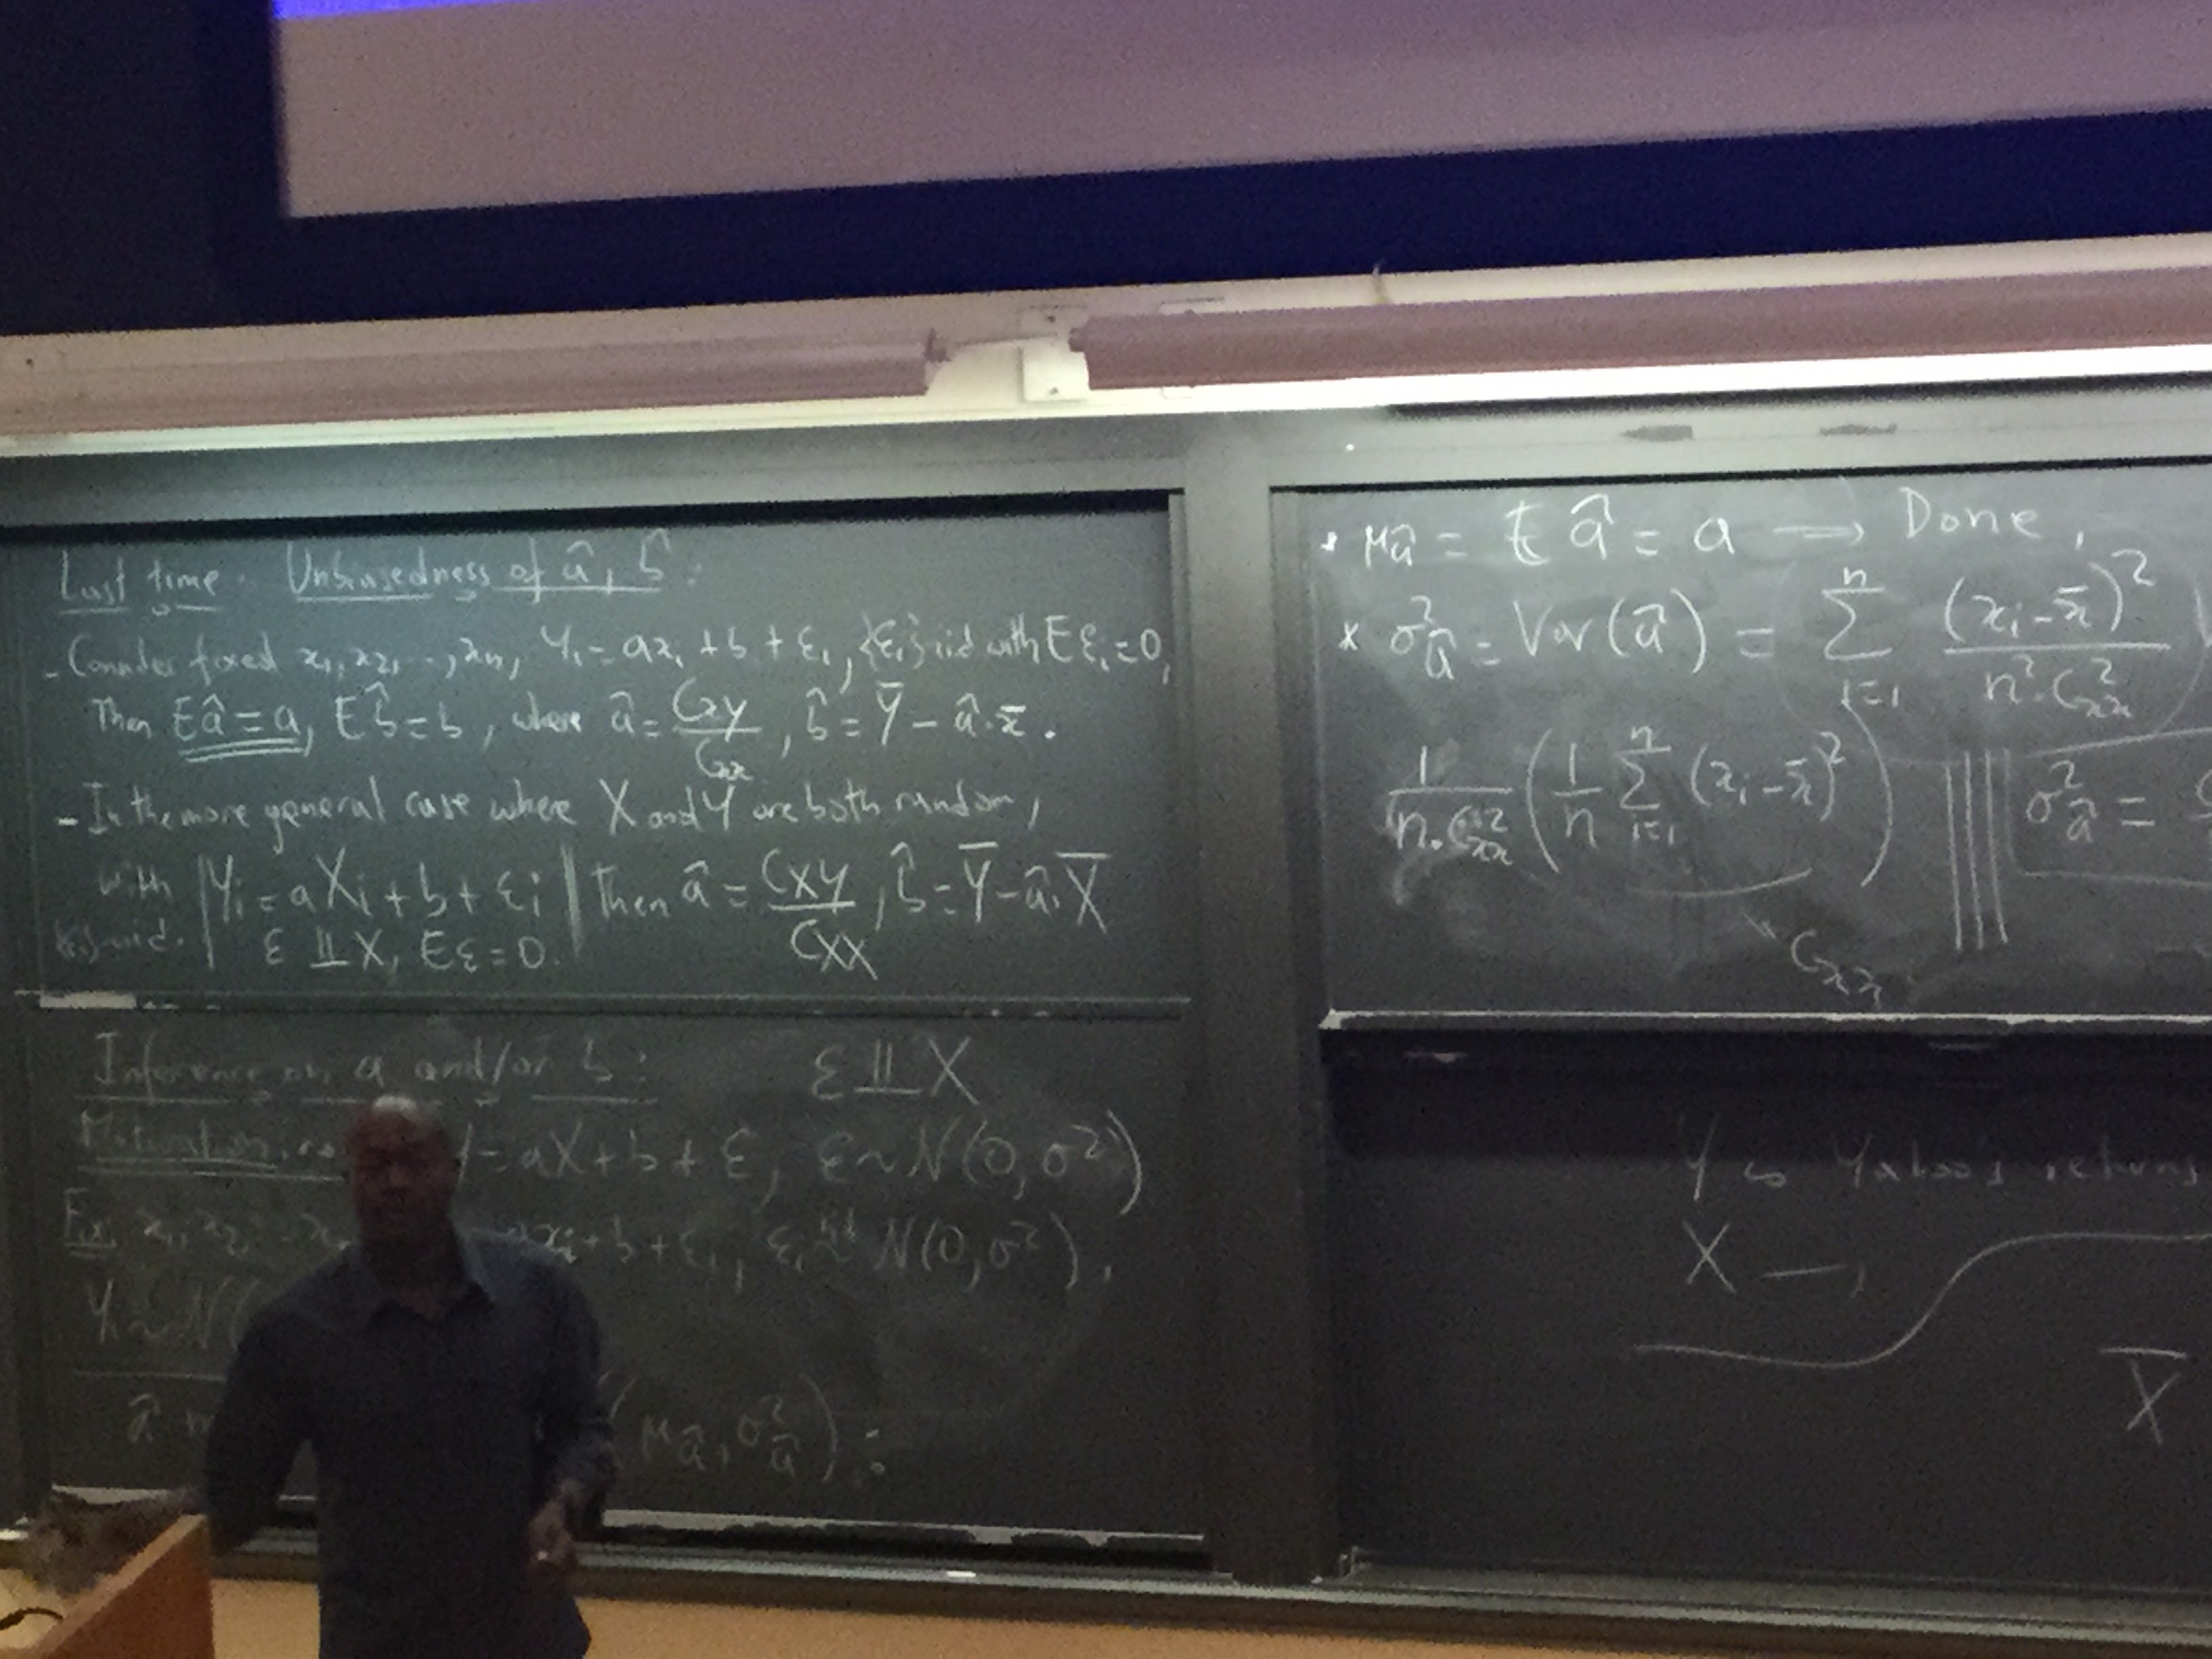 Last time. Unbiasedness of â, b̂ :
- Consider fixed x₁, x₂, ..., xₙ, Yᵢ = axᵢ + b + εᵢ, {εᵢ} iid with Eεᵢ = 0,
Then Eâ = a, Eb̂ = b, where â = Cxy / Cxx, b̂ = Ȳ - â·x̄.
- In the more general case where X and Y are both random,
with | Yᵢ = aXᵢ + b + εᵢ | then â = CXY / CXX, b̂ = Ȳ - â·X̄
{εᵢ} iid. | ε ⫫ X, Eε = 0.
Inference on a and/or b : ε ⫫ X
Motivation: = aX + b + ε, ε ~ N(0, σ²)
Ex. x₁, x₂, xᵢ + b + εᵢ, εᵢ iid ~ N(0, σ²),
Yᵢ ~ N(
â (μ_â, σ²_â) :
* μ_â = E â = a → Done,
* σ²_â = Var(â) = Σᵢ₌₁ⁿ (xᵢ - x̄)² / n²·C²xx
1 / n·C²xx ( 1/n Σᵢ₌₁ⁿ (xᵢ - x̄)² ) σ²_â =
Cxx
Y Yahoo's returns
X —,
X̄